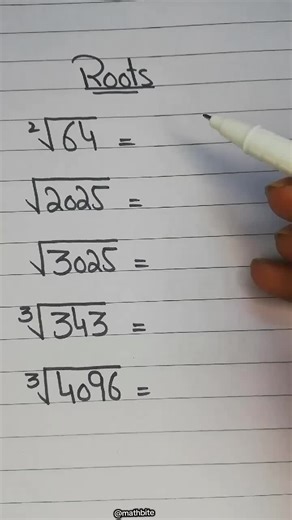 Roots
²√64 =
√2025 =
√3025 =
³√343 =
³√4096 =
@mathbite